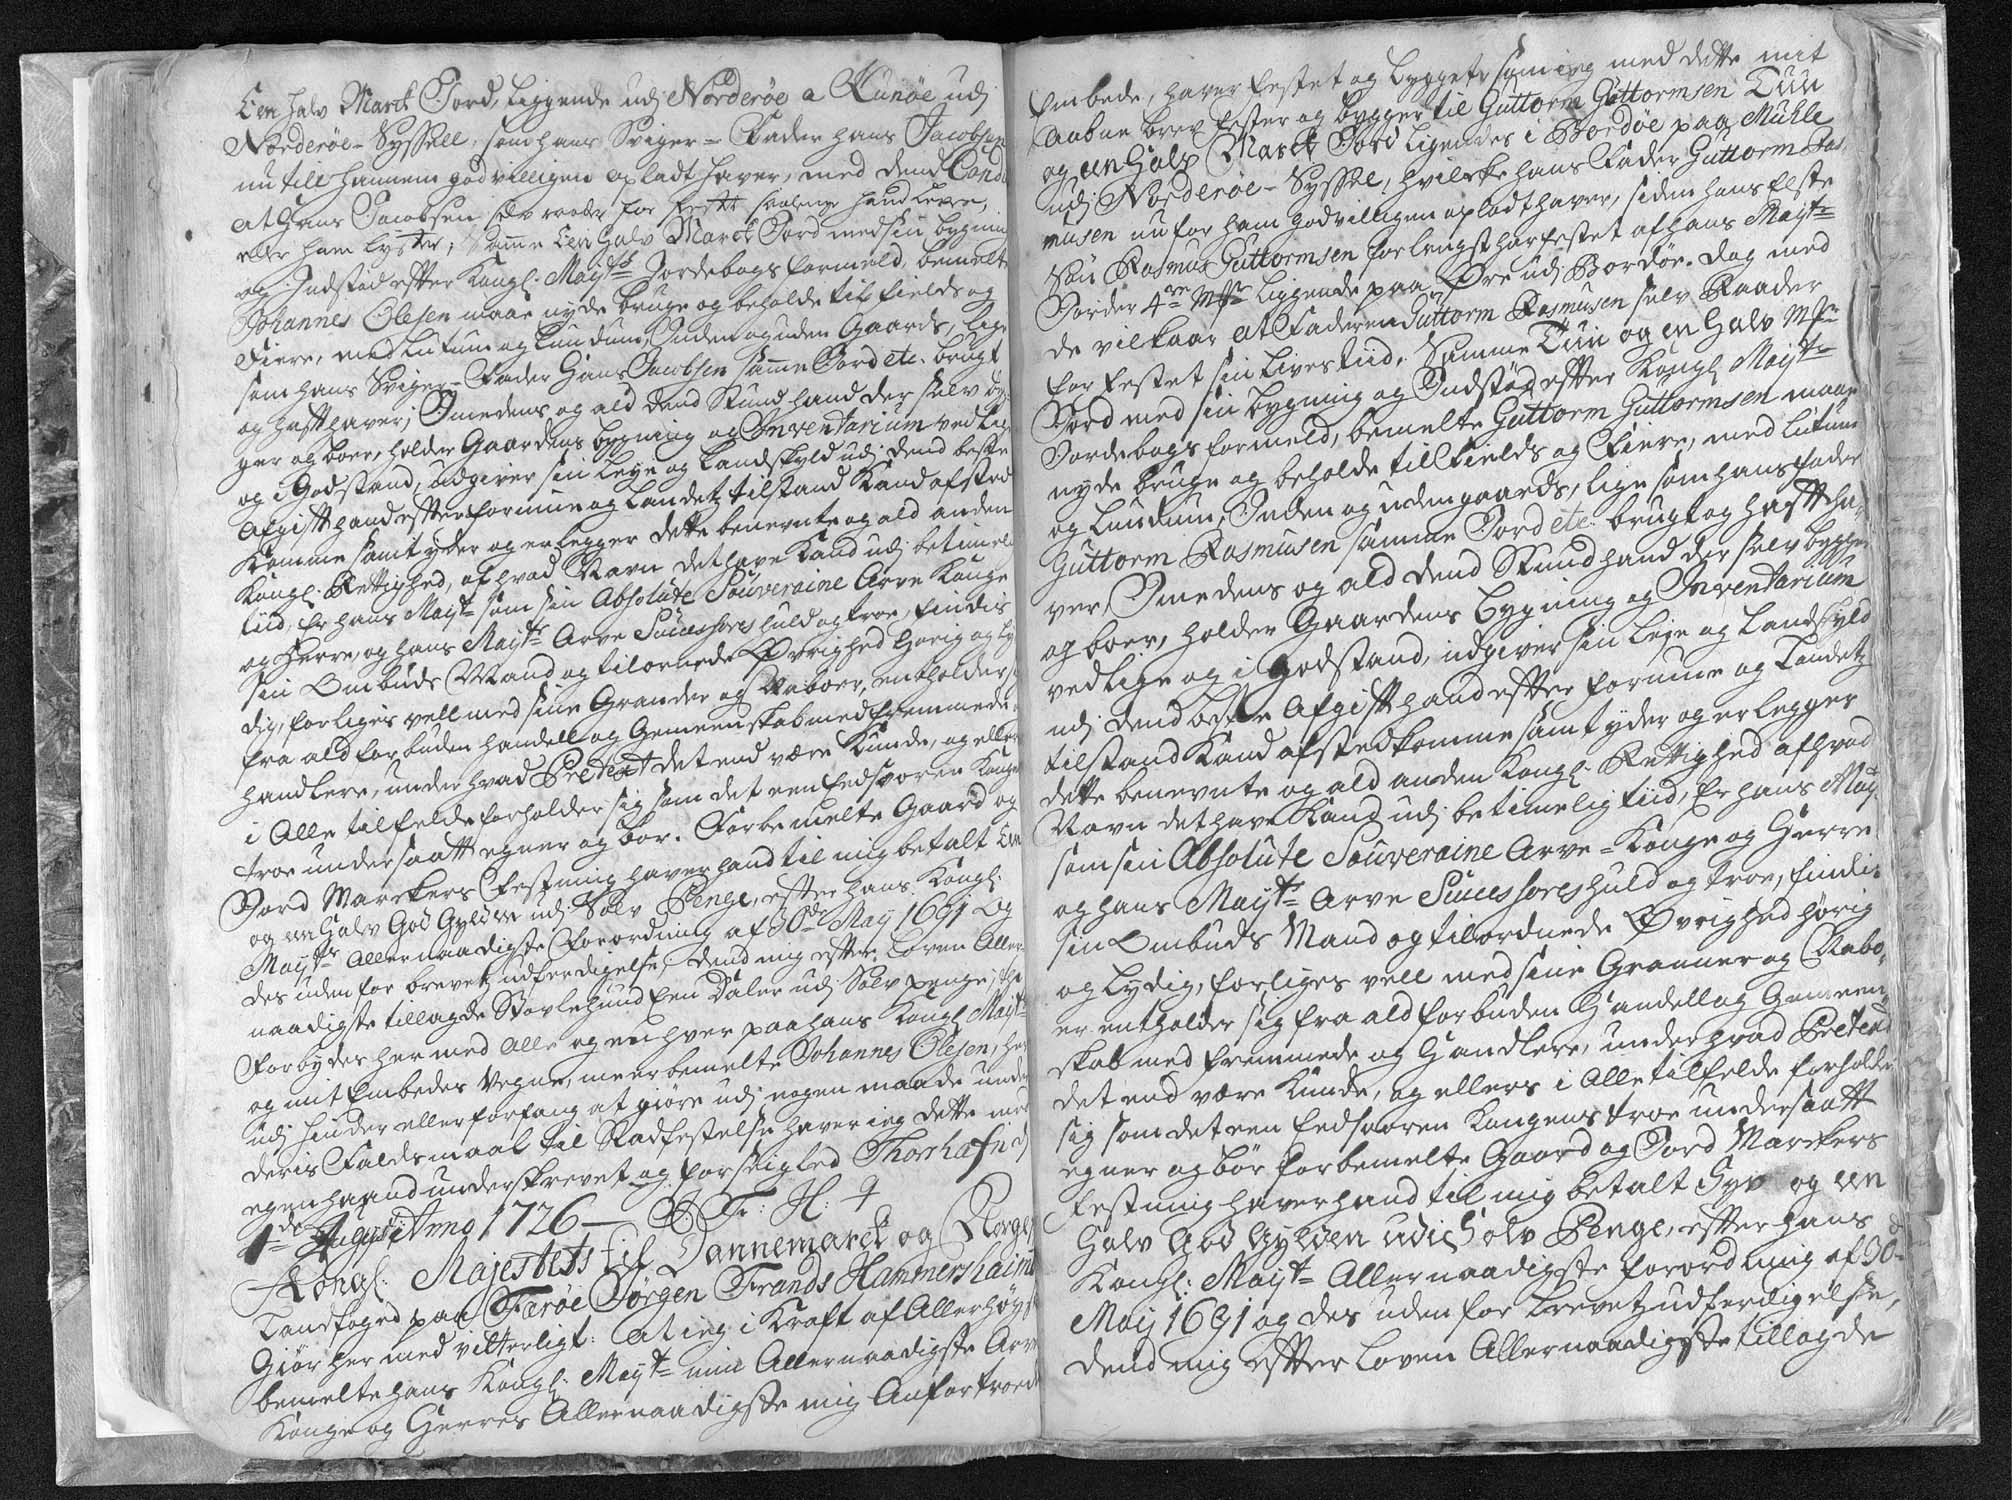 Een halv Marck Jord, liggende udj Norderøe a Kunøe udj
Norderøe-Syssell, som hans Sviger-Fader hans Jacobsen
nu till hannem godvilligen opladt haver, med dend Cond
at Hans Jacobsen selv raader for festet saalenge hand lever,
eller ham lyster; Samme Een Halv Marck Jord med sin bygning
og Indstød efter Kongl. Mayts Jordebogs formeld, bemelte
Johannes Olesen maae nyde bruge og beholde til fields og
Fiere, med lutum og lundum, Inden og uden Gaards, lige
som hans Sviger-Fader Hans Jacobsen samme Jord etc. brugt
og hafft haver; Imedens og ald dend Stund hand der selv byg-
ger og boer, holder Gaardens bygning og Inventarium ved lige
og i God stand, udgiver sin leye og Landskyld udj dend beste
Afgifft hand efter formue og Landets tilstand Kand afsted
Komme samt yder og erlegger dette benevnte og ald anden
Kongl. Rettighed, af hvad Navn det have Kand udj betimelig
tiid, Er hans Mayt som sin Absolute Souveraine Arve Konge
og Herre, og hans Mayts Arve Successores huld og troe, findis
sin Ombuds Mand og tilornede Øvrighed hørig og ly-
dig, forliges vell med sine Grander og Naboer, entholder sig
fra ald forbuden handell og Gemeenskab med fremmede og
handlere, under hvad Pretext det end være Kunde, og ellers
i Alle tilfelde forholder sig som det een Eedsvoren Kongens
troe undersaatt egner og bør. Forbemelte Gaard og
Jord Marckers Festning haver hand til mig betalt Een
og een Halv God Gylden udj Sølv Penge, efter hans Kongl.
Mayts Allernaadigste Forordning af 30de May 1691 Og
des uden for brevets udferdigelse, dend mig efter Loven Aller-
naadigste tillagde Støvlehuud Een Daler udj Sølv penge; thi
Forbydes her med Alle og en hver paa hans Kongl. Mayts
og mit Embedes Vegne, meerbemelte Johannes Olesen, her
udj hinder eller forfang at giøre udj nogen maade under
deris Faldsmaal til Stadfestelse haver ieg dette med
egen haand underskrevet og forseiglet Thorshafn d.
1de Augusti Anno 1726 — J: Fr: H:
Kongl: Majestets til Dannemarck og Norge
Landfoged paa Færøe Jørgen Frands Hammershaimb
Giør her med vitterligt: At ieg i Kraft af Allerhøyst
bemelte hans Kongl: Mayts min Allernaadigste Arve
Konge og Herres Allernaadigste mig Anfortroede
Embede, haver festet og bygget, som ieg med dette mit
Aabne brev fester og bygger til Guttorm Guttormsen Tuu
og een Halv Marck Jord ligendes i Bordøe paa Muhle
udj Norderøe-Syssel, hvilcke hans Fader Guttorm Ras-
musen nu for ham godvilligen opladt haver, siden hans Elste
Søn Rasmus Guttormsen for lengst har festet af hans Mayts
Jorder 4re Mk liggende paa Øre udj Bordøe. dog med
de vilkaar at Faderen Guttorm Rasmusen selv Raader
for Festet sin Lives tiid. Samme Tuu og en Halv Mk
Jord med sin bygning og Indstød efter Kongl Mayts
Jordebogs formeld, bemelte Guttorm Guttormsen maae
nyde bruge og beholde til Fields og Fiere, med lutum
og lundum, Inden og uden gaards, lige som hans Fader
Guttorm Rasmusen samme Jord etc. brugt og hafft ha-
ver, Imedens og ald dend Stund hand der selv bygger
og boer, holder Gaardens bygning og Inventarium
ved lige og i God stand, udgiver sin leje og Landskyld
udj dend beste Afgifft hand efter formue og Landets
tilstand Kand afstedkomme samt yder og erlegger
dette benevnte og ald anden Kongl. Rettighed af hvad
Navn det have Kand udj betimelig tiid, Er hans Mayt
som sin Absolute Souveraine Arve-Konge og Herre
og hans Mayts Arve Successores huld og troe, findis
sin Ombuds Mand og tilordnede Øvrighed hørig
og lydig, forliges vell med sine Granner og Nabo-
er entholder sig fra ald forbuden Handell og Gemeen-
skab med fremmede og Handlere, under hvad Pretext
det end være Kunde, og ellers i Alle tilfelde forholder
sig som det een Eedsvoren Kongens troe undersaatt
egner og bør forbemelte Gaard og Jord Marckers
Festning haver hand til mig betalt Syv og een
Halv God Gylden udi Sølv Penge, efter hans
Kongl: Mayts Allernaadigste forordning af 30de
May 1691 og des uden for brevets udferdigelse,
dend mig efter Loven Allernaadigste tillagde